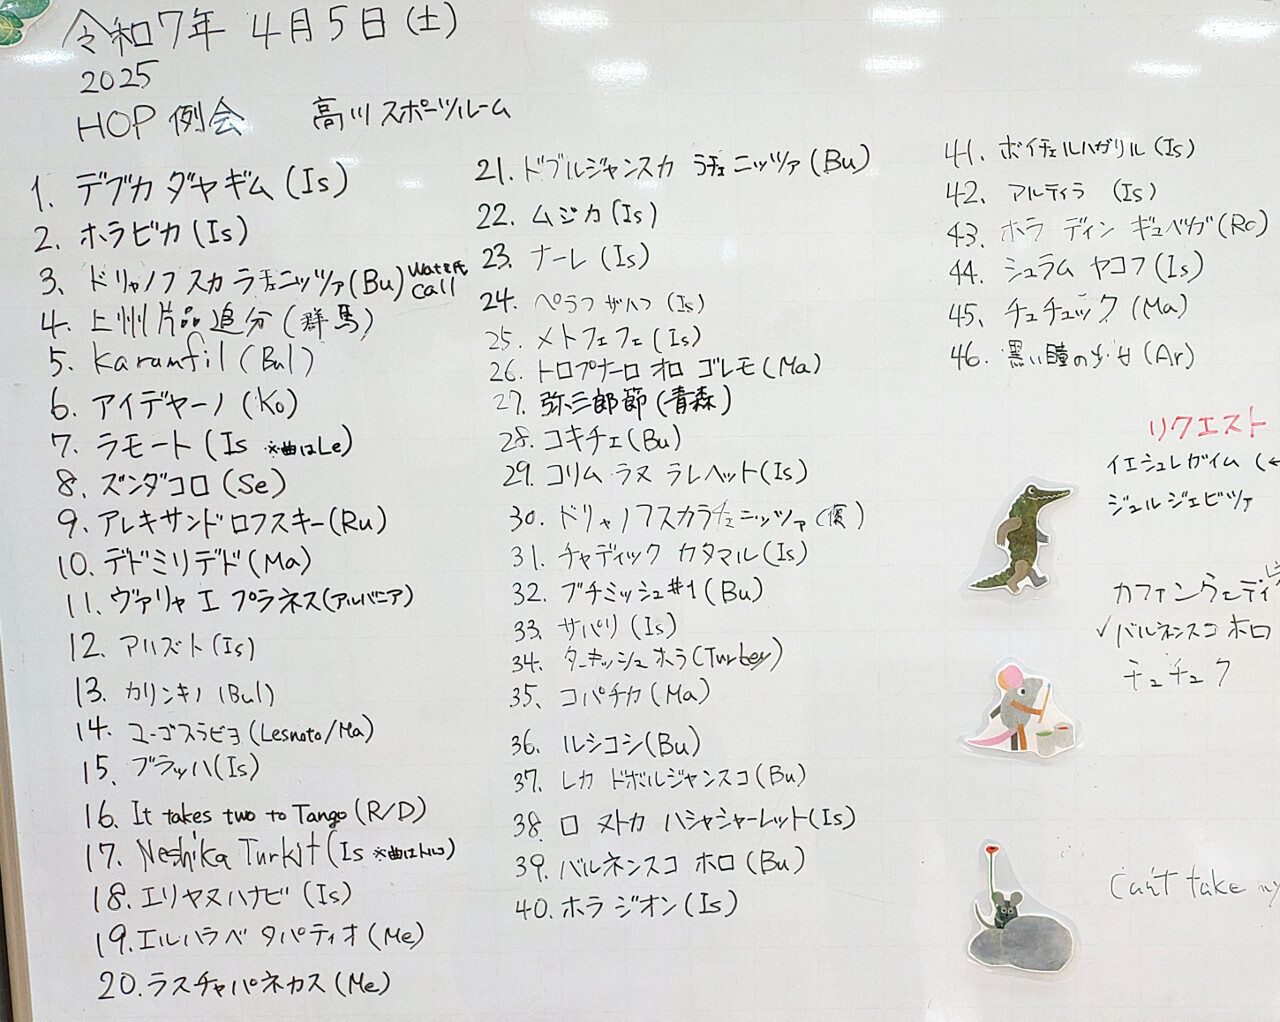 令和7年 4月5日(土)
2025
HOP 例会 高川スポーツルーム
1. デブカ ダヤギム (Is)
2. ホラビカ (Is)
3. ドリャノフスカ ラチェニッツァ(Bu) Wata氏 call
4. 上州片品追分 (群馬)
5. Karamfil (Bul)
6. アイデヤーノ (Ko)
7. ラモート (Is ※曲はLe)
8. ズンダコロ (Se)
9. アレキサンドロフスキー(Ru)
10. デドミリデド(Ma)
11. ヴァリャエ プラネス(アルバニア)
12. アハズト (Is)
13. カリンキノ (Bul)
14. ユーゴスラビヨ (Lesnoto/Ma)
15. ブラッハ(Is)
16. It takes two to Tango (R/D)
17. Neshika Turkit (Is ※曲はトルコ)
18. エリヤヌハナビ (Is)
19. エルハラベ タパティオ (Me)
20. ラスチャパネカス (Me)
21. ドブルジャンスカ ラチェニッツァ (Bu)
22. ムジカ (Is)
23. ナーレ (Is)
24. ペラフ ザハフ (Is)
25. メトフェフェ (Is)
26. トロプナーロ オロ ゴレモ (Ma)
27. 弥三郎節 (青森)
28. コキチェ(Bu)
29. コリム ラヌ ラレヘット(Is)
30. ドリャノフスカラチェニッツァ (優)
31. チャディック カタマル (Is)
32. ブチミッシュ#1 (Bu)
33. サパリ (Is)
34. ターキッシュ ホラ (Turkey)
35. コパチカ (Ma)
36. ルシコシ(Bu)
37. レカ ドボルジャンスコ (Bu)
38. ロ ヌトカ ハシャシャーレット(Is)
39. バルネンスコ ホロ (Bu)
40. ホラ ジオン (Is)
41. ボイチェルハガリル (Is)
42. アルティラ (Is)
43. ホラ ディン ギュベヴガ (Ro)
44. シュラム ヤコフ (Is)
45. チュチュック (Ma)
46. 黒い瞳の少女 (Ar)
リクエスト
イエシュレガイム (←
ジュルジェビツァ
カファンウェディ
✓バルネンスコ ホロ
チュチュク
Can't take my